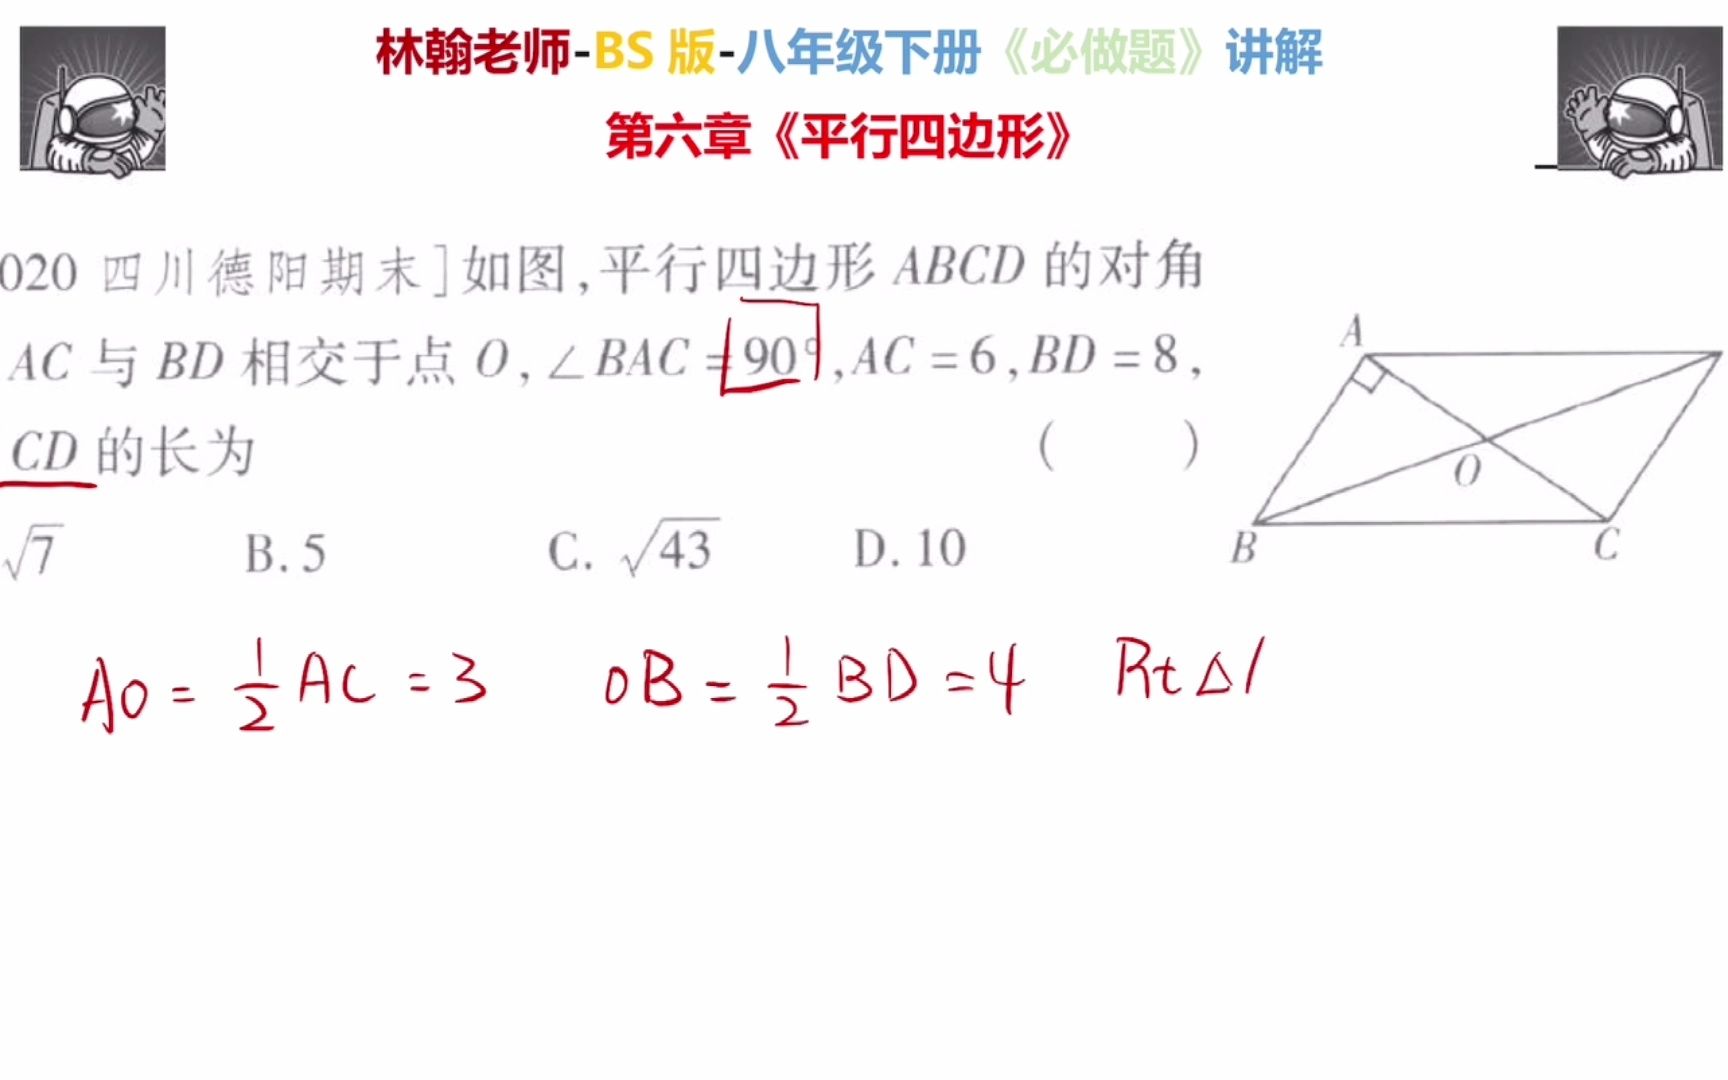 林翰老师-BS 版-八年级下册《必做题》讲解
第六章《平行四边形》
020 四川德阳期末]如图,平行四边形 ABCD 的对角
AC 与 BD 相交于点 O,∠BAC=90°,AC=6,BD=8,
CD 的长为 ( )
√7 B. 5 C. √43 D. 10
A
O
B
C
AO = 1/2 AC = 3 OB = 1/2 BD = 4 Rt△